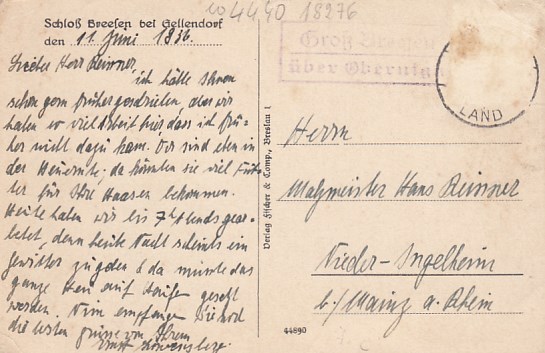 10 44.40 18276
Schloß Breesen bei Gellendorf
den 11. Juni 1936.
Lieber Herr Reinner,
ich hätte Ihnen
schon gern früher geschrieben, aber wir
haben so viel Arbeit hier dass ich frü-
her nicht dazu kam. Wir sind eben in
der Heuernte; da könnten sie viel Fut-
ter für Ihre Haasen bekommen.
Heute haben wir bis 7h Abends gear-
beitet, denn heute Nacht scheints ein
gewitter zu geben & da musste das
ganze Heu auf Haufen gesetzt
werden. Nun empfangen Sie
die besten grüsse von Ihrem
Ernst
Verlag Fischer & Comp., Breslau 1
Groß
über Obernigk
LAND
Herrn
Malzmeister Hans Reinner
Nieder-Ingelheim
b./Mainz a. Rhein
44890